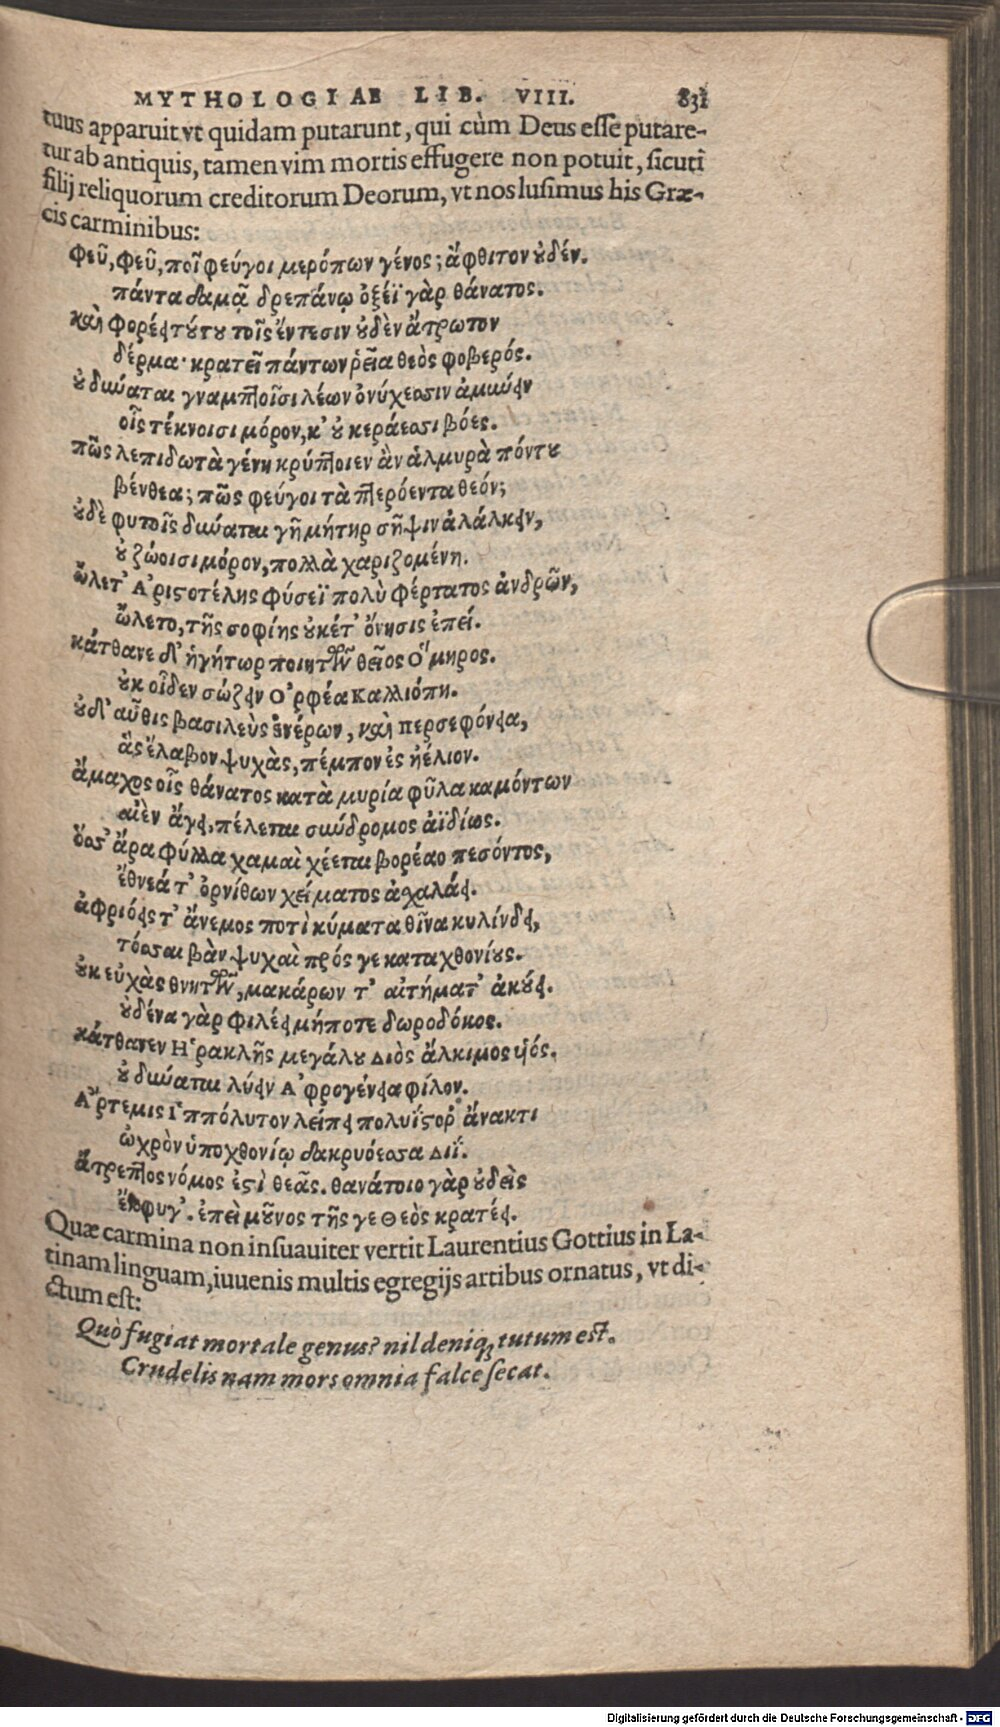 MYTHOLOGIAE LIB. VIII. 831
tuus apparuit vt quidam putarunt, qui cùm Deus esse putare-
tur ab antiquis, tamen vim mortis effugere non potuit, sicuti
filij reliquorum creditorum Deorum, vt nos lusimus his Græ-
cis carminibus:
Φεῦ, φεῦ, ποῖ φεύγοι μερόπων γένος; ἄφθιτον ȣ̓δέν.
πάντα δαμᾷ δρεπάνῳ ὀξέϊ γὰρ θάνατος.
καὶ φορέει τȣ́τȣ τοῖς ἔντεσιν ȣ̓δὲν ἄτρωτον
δέρμα· κρατεῖ πάντων ῥεῖα θεὸς φοβερός.
ȣ̓ δύναται γναμπτοῖσι λέων ὀνύχεσσιν ἀμύνειν
οἷς τέκνοισι μόρον, κ' ȣ̓ κεράεσσι βόες.
πῶς λεπιδωτὰ γένη κρύπτοιεν ἂν ἁλμυρὰ πόντȣ
βένθεα; πῶς φεύγοι τὰ πτερόεντα θεόν;
ȣ̓δὲ φυτοῖς δύναται γῆ μήτηρ σῆψιν ἀλάλκειν,
ȣ̓ ζώοισι μόρον, πολλὰ χαριζομένη.
ὤλετ' Ἀριστοτέλης φύσεϊ πολὺ φέρτατος ἀνδρῶν,
ὤλετο, τῆς σοφίης ȣ̓κέτ' ὄνησις ἐπεί.
κάτθανε δ' ἡγήτωρ ποιητῶν θεῖος Ὅμηρος.
ȣ̓κ οἶδεν σώζειν Ὀρφέα Καλλιόπη.
ȣ̓δ' αὖθις βασιλεὺς ἐνέρων, καὶ περσεφόνεια,
ἃς ἔλαβον ψυχὰς, πέμπον ἐς ἠέλιον.
ἄμαχος οἷς θάνατος κατὰ μυρία φῦλα καμόντων
αἰὲν ἄγει, πέλεται σύνδρομος ἀϊδίως.
ὅσσ' ἄρα φύλλα χαμαὶ χέεται βορέαο πεσόντος,
ἔθνεά τ' ὀρνίθων χείματος ἀχαλάει.
ἀφριόεις τ' ἄνεμος ποτὶ κύματα θῖνα κυλίνδει,
τόσσαι βὰν ψυχαὶ πρός γε καταχθονίȣς.
ȣ̓κ εὐχὰς θνητῶν, μακάρων τ' αἰτήματ' ἀκȣ́ει.
ȣ̓δένα γὰρ φιλέει μήποτε δωροδόκος.
κάτθανεν Ἡρακλῆς μεγάλȣ Διὸς ἄλκιμος υἱός.
ȣ̓ δύναται λύειν Ἀφρογένεια φίλον.
Ἄρτεμις Ἱππόλυτον λείπει πολυΐστορ' ἄνακτι
ὠχρὸν ὑποχθονίῳ δακρυόεσσα Διΐ.
ἄτρεπτος νόμος ἐστὶ θεᾶς. θανάτοιο γὰρ ȣ̓δεὶς
ἔκφυγ'. ἐπεὶ μȣ͂νος τῆς γε Θεὸς κρατέει.
Quæ carmina non insuauiter vertit Laurentius Gottius in La-
tinam linguam, iuuenis multis egregijs artibus ornatus, vt di-
ctum est:
Quò fugiat mortale genus? nil deniq; tutum est.
Crudelis nam mors omnia falce secat.
Digitalisierung gefördert durch die Deutsche Forschungsgemeinschaft - DFG